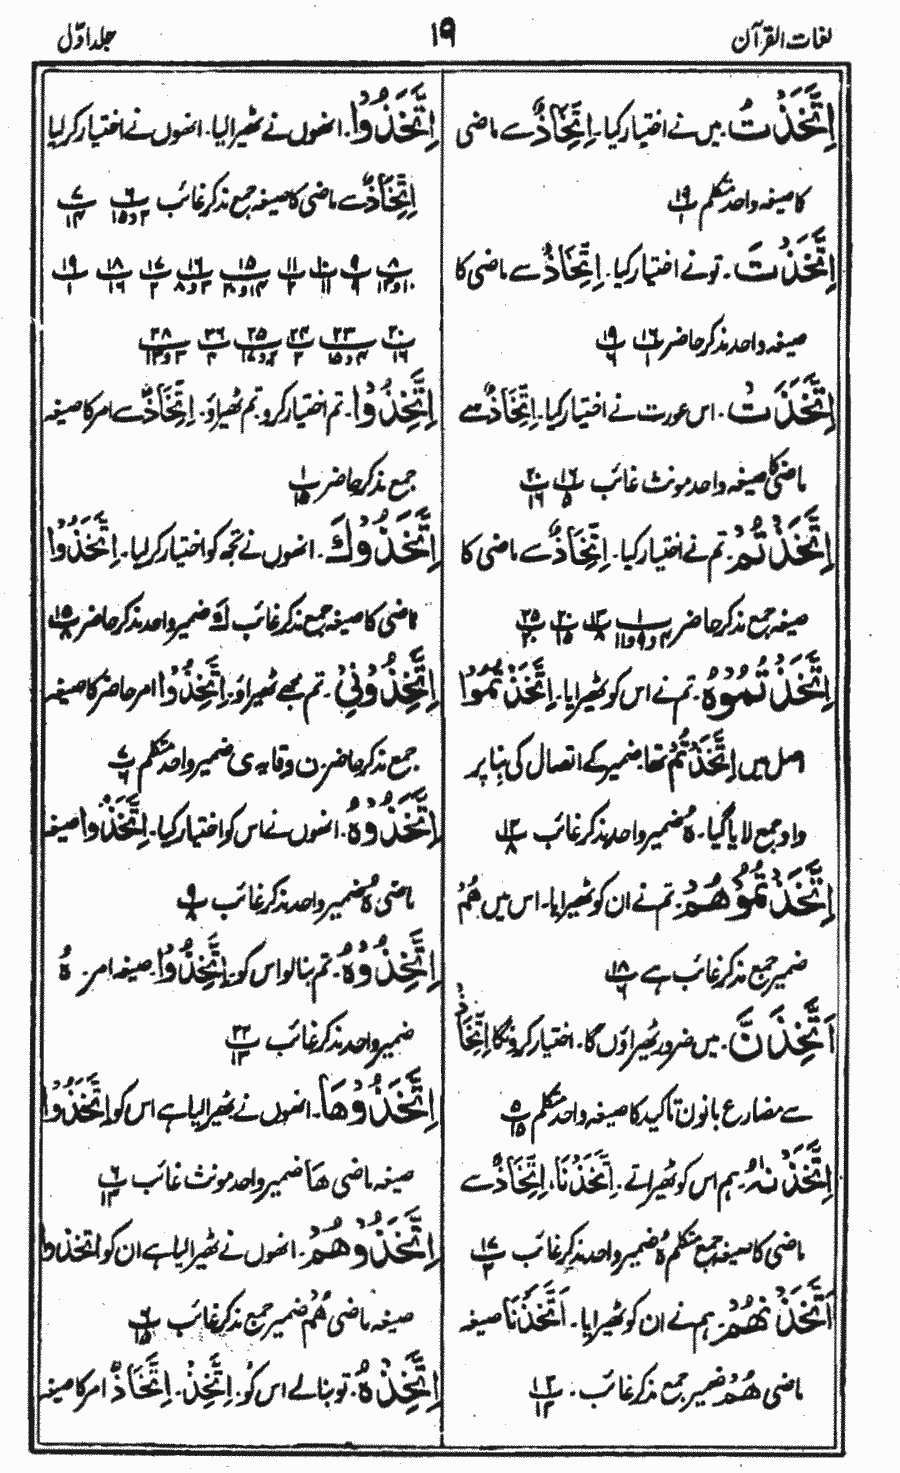 لغات القرآن
۱۹
جلد اوّل
اِتَّخَذْتُ۔ میں نے اختیار کیا۔ اِتِّخَاذٌ سے ماضی
کا صیغہ واحد متکلم ۱۹/۱
اِتَّخَذْتَ۔ تو نے اختیار کیا۔ اِتِّخَاذٌ سے ماضی کا
صیغہ واحد مذکر حاضر ۱۶/۱ ۱۹/۶
اِتَّخَذَتْ۔ اس عورت نے اختیار کیا۔ اِتِّخَاذٌ سے
ماضی کا صیغہ واحد مونث غائب ۱۶/۵ ۲۰/۱۶
اِتَّخَذْتُمْ۔ تم نے اختیار کیا۔ اِتِّخَاذٌ سے ماضی کا
صیغہ جمع مذکر حاضر ۱/۶ و ۹ و ۱۱ ۱۲/۸ ۲۰/۱۵ ۲۵/۲۰
اِتَّخَذْتُمُوْهُ۔ تم نے اس کو ٹھیرایا۔ اِتَّخَذْتُمُوْا
اصل میں اِتَّخَذْتُمْ تھا ضمیر کے اتصال کی بنا پر
واو جمع لایا گیا۔ ہٗ ضمیر واحد مذکر غائب ۱۲/۸
اِتَّخَذْتُمُوْهُمْ۔ تم نے ان کو ٹھیرایا۔ اس میں ھُمْ
ضمیر جمع مذکر غائب ہے ۱۸/۶
اَتَّخِذَنَّ۔ میں ضرور ٹھیراؤں گا۔ اختیار کرونگا اِتِّخَاذٌ
سے مضارع بانون تاکید کا صیغہ واحد متکلم ۵/۱۵
اِتَّخَذْنٰہُ۔ ہم اس کو ٹھیراتے۔ اِتَّخَذْنَا، اِتِّخَاذٌ سے
ماضی کا صیغہ جمع متکلم ہٗ ضمیر واحد مذکر غائب ۱۷/۲
اَتَّخَذْنٰھُمْ۔ ہم نے ان کو ٹھیرایا۔ اَتَّخَذْنَا صیغہ
ماضی ھُمْ ضمیر جمع مذکر غائب۔ ۲۳/۱۳
اِتَّخَذُوْا۔ انھوں نے ٹھیرالیا۔ انھوں نے اختیار کرلیا
اِتِّخَاذٌ سے ماضی کا صیغہ جمع مذکر غائب ۶/۳ و ۱۵ ۷/۱۴
۸/۱۰ و ۱۲ ۹/۹ ۱۰/۱۱ ۱۱/۲ ۱۵/۱۴ و ۲۰ ۱۶/۳ و ۸ ۱۷/۲ ۱۸/۱۶ ۱۹/۱
۲۰/۱۶ ۲۳/۴ و ۱۵ ۲۴/۲ ۲۵/۲ و ۱۷ ۲۶/۳ ۲۸/۳ و ۱۳
اِتَّخِذُوْا۔ تم اختیار کرو۔ تم ٹھیراؤ۔ اِتِّخَاذٌ سے امر کا صیغہ
جمع مذکر حاضر ۱/۱۵
اِتَّخَذُوْكَ۔ انھوں نے تجھ کو اختیار کرلیا۔ اِتَّخَذُوْا
ماضی کا صیغہ جمع مذکر غائب كَ ضمیر واحد مذکر حاضر ۱۵/۸
اِتَّخِذُوْنِیْ۔ تم مجھے ٹھیراؤ۔ اِتَّخِذُوْا امر حاضر کا صیغہ
جمع مذکر حاضر۔ ن وقایہ ی ضمیر واحد متکلم ۷/۶
اِتَّخَذُوْہُ۔ انھوں نے اس کو اختیار کیا۔ اِتَّخَذُوْا صیغہ
ماضی ہٗ ضمیر واحد مذکر غائب ۹/۸
اِتَّخِذُوْہُ۔ تم بنالو اس کو۔ اِتَّخِذُوْا صیغہ امر۔ ہٗ
ضمیر واحد مذکر غائب ۲۲/۱۳
اِتَّخَذُوْھَا۔ انھوں نے ٹھیرالیا ہے اس کو اِتَّخَذُوْا
صیغہ ماضی ھَا ضمیر واحد مونث غائب ۶/۱۳
اِتَّخَذُوْھُمْ۔ انھوں نے ٹھیرالیا ہے ان کو اتخذوا
صیغہ ماضی ھُمْ ضمیر جمع مذکر غائب ۶/۱۵
اِتَّخِذْہُ۔ تو بنالے اس کو۔ اِتَّخِذْ۔ اِتِّخَاذٌ امر کا صیغہ